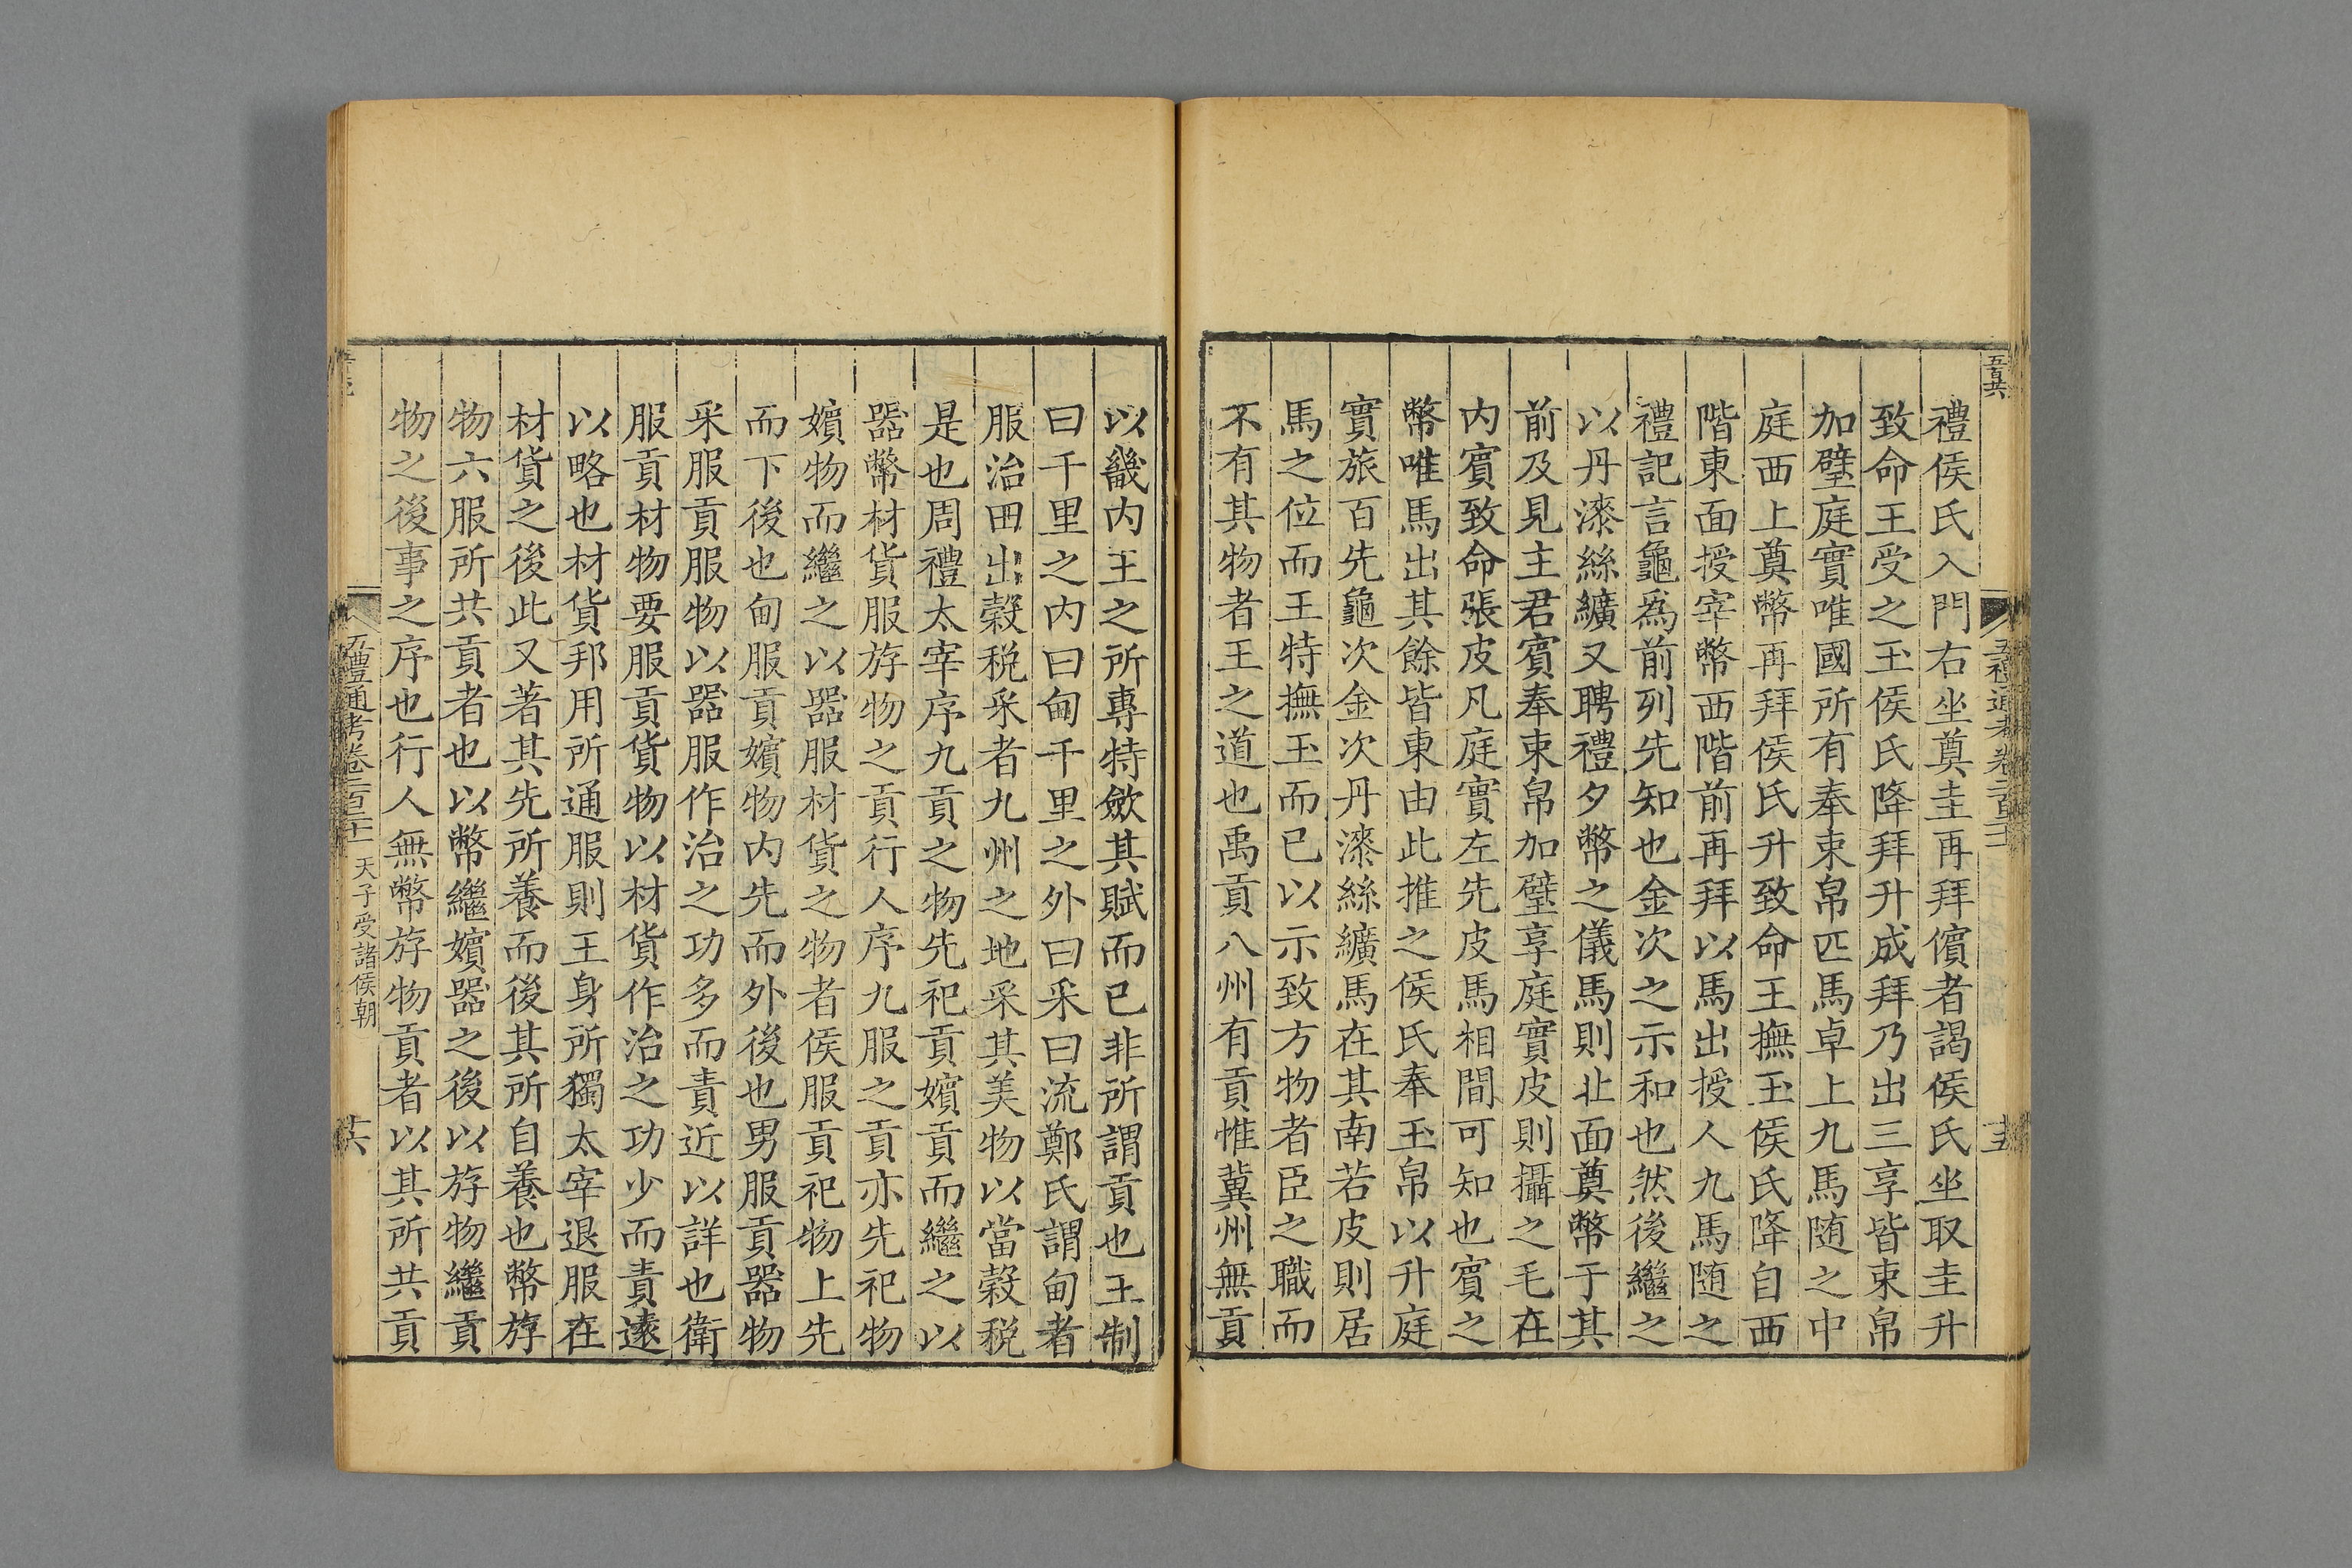 禮侯氏入門右坐奠圭再拜儐者謁侯氏坐取圭升
致命王受之玉侯氏降拜升成拜乃出三享皆束帛
加璧庭實唯國所有奉束帛匹馬卓上九馬随之中
庭西上奠幣再拜侯氏升致命王撫玉侯氏降自西
階東面授宰幣西階前再拜以馬出授人九馬随之
禮記言龜爲前列先知也金次之示和也然後繼之
以丹漆絲纊又聘禮夕幣之儀馬則北面奠幣于其
前及見主君賓奉束帛加璧享庭實皮則攝之毛在
内賓致命張皮凡庭實左先皮馬相間可知也賓之
幣唯馬出其餘皆東由此推之侯氏奉玉帛以升庭
實旅百先龜次金次丹漆絲纊馬在其南若皮則居
馬之位而王特撫玉而已以示致方物者臣之職而
不有其物者王之道也禹貢八州有貢惟冀州無貢
以畿内王之所專特斂其賦而已非所謂貢也王制
曰千里之内曰甸千里之外曰采曰流鄭氏謂甸者
服治田出穀税采者九州之地采其美物以當穀税
是也周禮太宰序九貢之物先祀貢嬪貢而繼之以
器幣材貨服斿物之貢行人序九服之貢亦先祀物
嬪物而繼之以器服材貨之物者侯服貢祀物上先
而下後也甸服貢嬪物内先而外後也男服貢器物
采服貢服物以器服作治之功多而責近以詳也衛
服貢材物要服貢貨物以材貨作治之功少而責遠
以略也材貨邦用所通服則王身所獨太宰退服在
材貨之後此又著其先所養而後其所自養也幣斿
物六服所共貢者也以幣繼嬪器之後以斿物繼貢
物之後事之序也行人無幣斿物貢者以其所共貢
五禮通考卷二百二十 天子受諸侯朝 十六